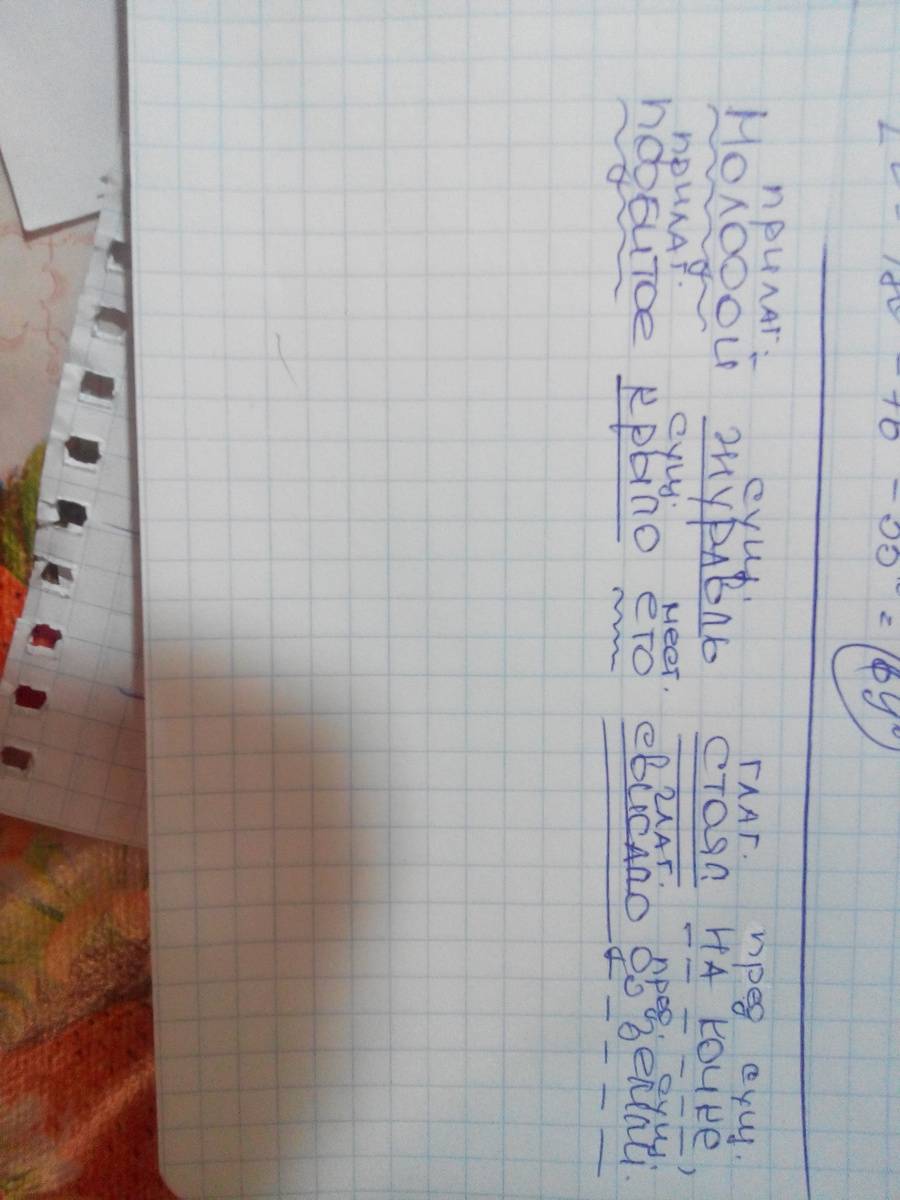 прилаг. сущ. глаг. пред сущ.
Молодой журавль стоял на кочке,
прилаг. сущ. мест. глаг. пред. сущ.
подбитое крыло его свисало до земли.